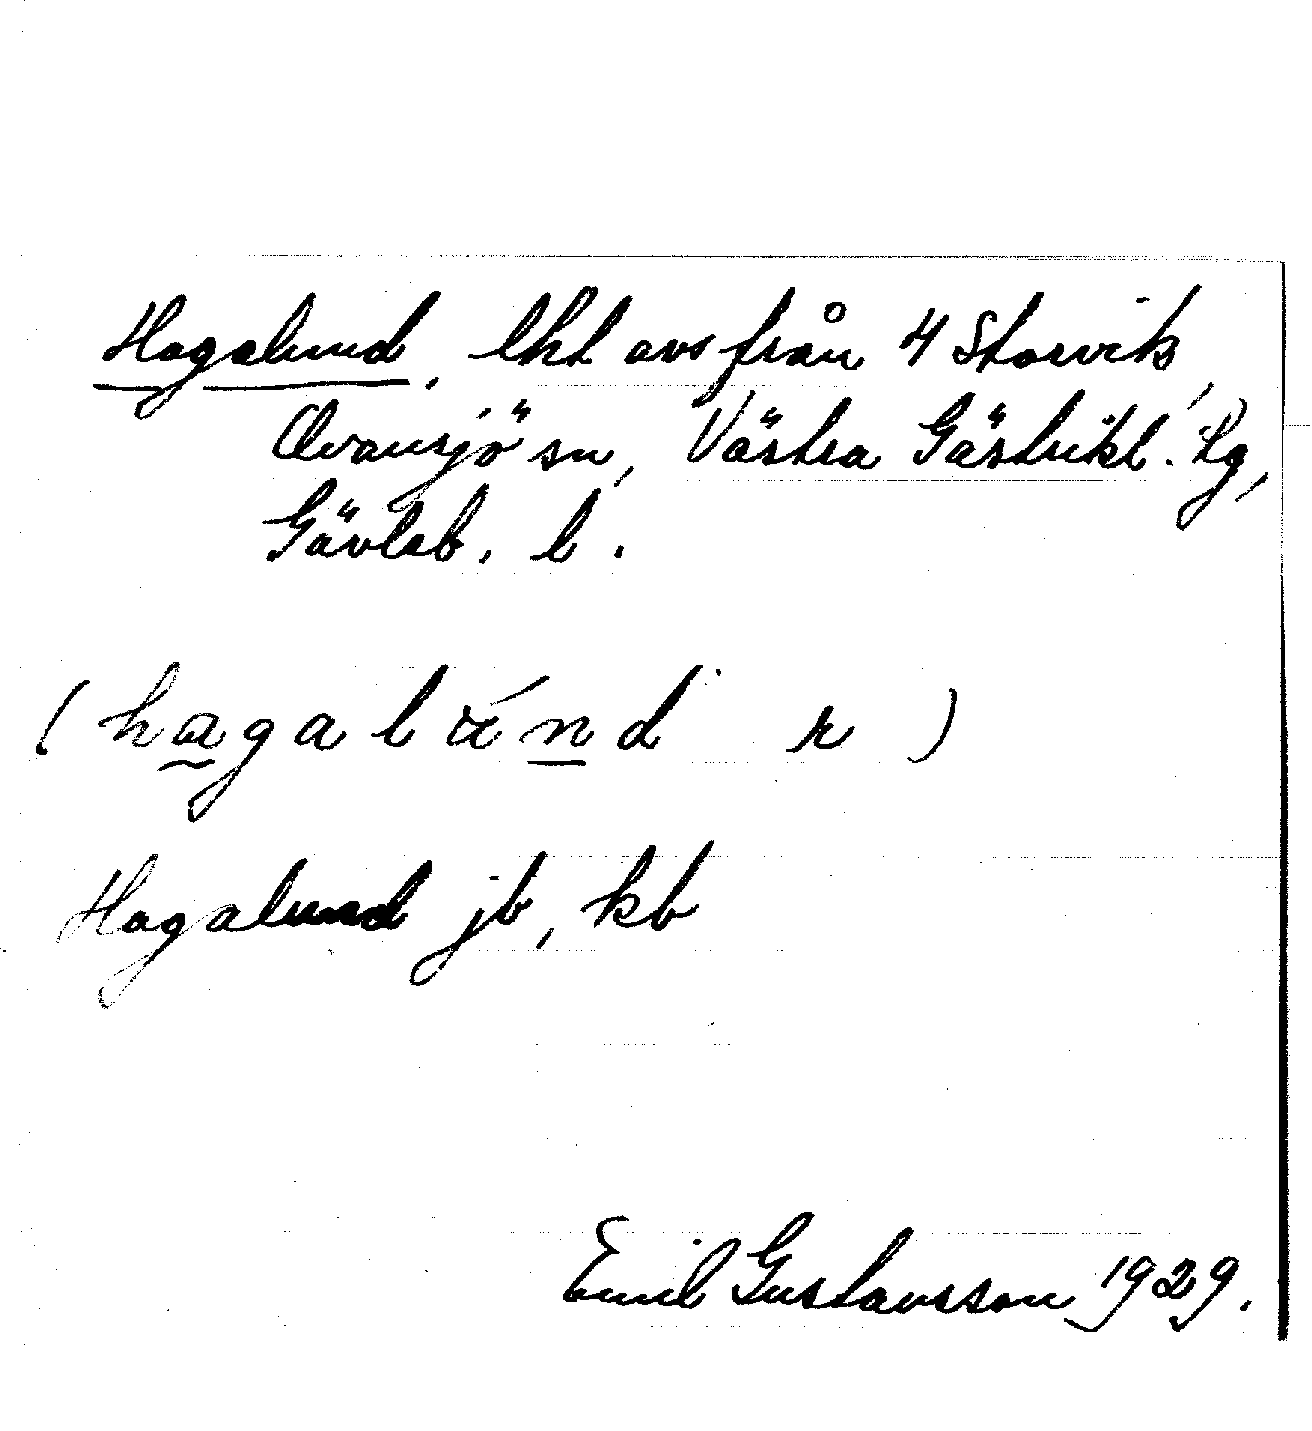 Hagalund, lht avs från 4 Storvik,
Ovansjö sn, Västra Gästrikl. tg,
Gävleb. l.
(hagalánd r)
Hagalund jb, kb
Emil Gustavsson 1929.